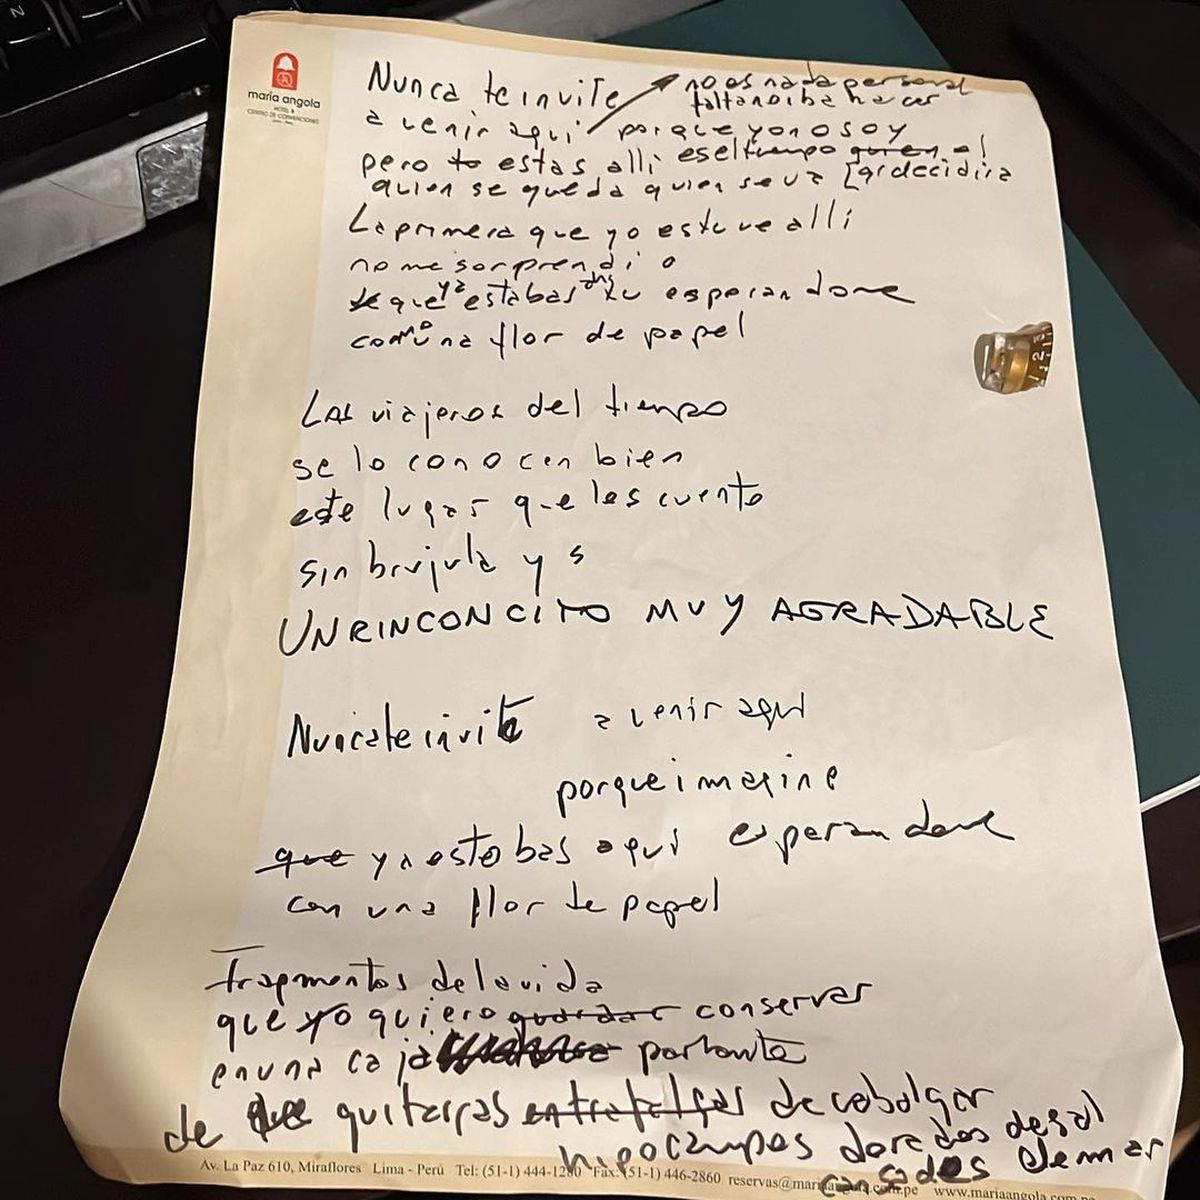 maria angola
HOTEL &
CENTRO DE CONVENCIONES
Nunca te invite
no es nada personal
faltando iba hacer
a venir aqui porque yo no soy
pero to estas alli es el tiempo quien el
quien se queda quien se va [q decidira
La primera que yo estuve alli
no me sorprendi o
que ya estabas tu esperandome
como una flor de papel
Las viajeros del tiempo
se lo conocen bien
este lugar que les cuento
sin brujula y s
UN RINCONCITO MUY AGRADABLE
Nunca te invite a venir aqui
porque imagine
que ya estabas aqui esperandome
con una flor de papel
Fragmentos de la vida
que yo quiero guardar conservar
en una caja portante
de guitarras entre de cabalgar
hipocampos dorados de sal
cansados de mar
Av. La Paz 610, Miraflores Lima - Perú Tel: (51-1) 444-1280 Fax: (51-1) 446-2860 reservas@mariaangola.com.pe www.mariaangola.com.pe